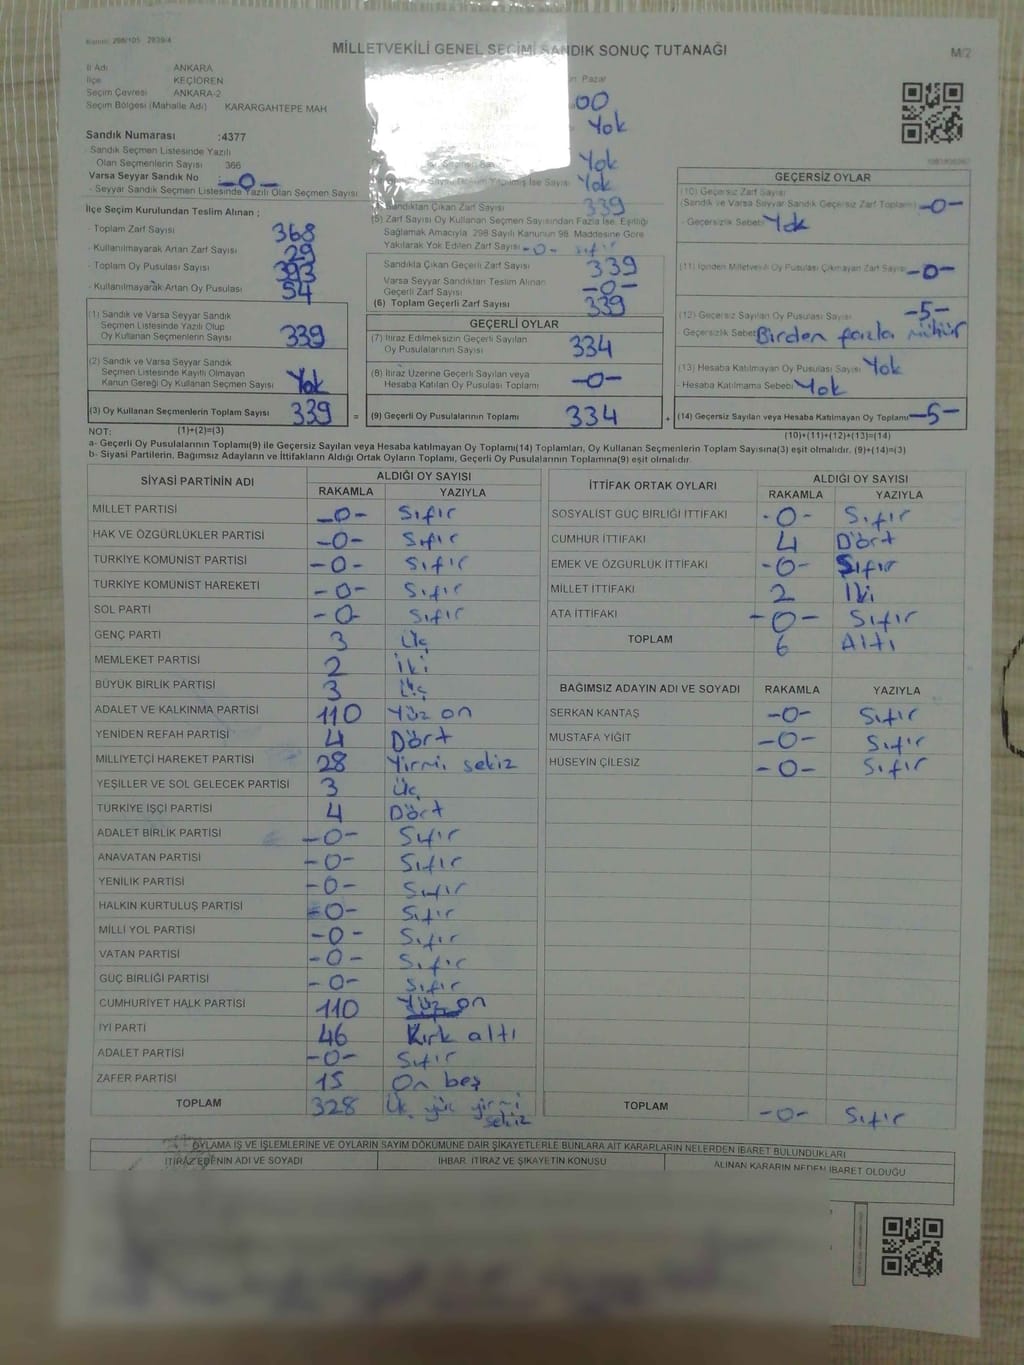 MİLLETVEKİLİ GENEL SEÇİMİ SANDIK SONUÇ TUTANAĞI
M/2
İl Adı ANKARA
İlçe KEÇİÖREN
Seçim Çevresi ANKARA-2
Seçim Bölgesi (Mahalle Adı) KARARGAHTEPE MAH
Pazar
00
Yok
Yok
Yok
Sandık Numarası :4377
Sandık Seçmen Listesinde Yazılı
Olan Seçmenlerin Sayısı 366
Varsa Seyyar Sandık No -0-
- Seyyar Sandık Seçmen Listesinde Yazılı Olan Seçmen Sayısı
İlçe Seçim Kurulundan Teslim Alınan ;
- Toplam Zarf Sayısı 368
- Kullanılmayarak Artan Zarf Sayısı 29
- Toplam Oy Pusulası Sayısı 393
- Kullanılmayarak Artan Oy Pusulası 54
(1) Sandık ve Varsa Seyyar Sandık
Seçmen Listesinde Yazılı Olup
Oy Kullanan Seçmenlerin Sayısı 339
(2) Sandık ve Varsa Seyyar Sandık
Seçmen Listesinde Kayıtlı Olmayan
Kanun Gereği Oy Kullanan Seçmen Sayısı Yok
(3) Oy Kullanan Seçmenlerin Toplam Sayısı 339 =
NOT: (1)+(2)=(3)
Sandıktan Çıkan Zarf Sayısı 339
(5) Zarf Sayısı Oy Kullanan Seçmen Sayısından Fazla İse, Eşitliği
Sağlamak Amacıyla, 298 Sayılı Kanunun 98. Maddesine Göre
Yakılarak Yok Edilen Zarf Sayısı -0- sıfır
Sandıkta Çıkan Geçerli Zarf Sayısı 339
Varsa Seyyar Sandıktan Teslim Alınan
Geçerli Zarf Sayısı -0-
(6) Toplam Geçerli Zarf Sayısı 339
GEÇERLİ OYLAR
(7) İtiraz Edilmeksizin Geçerli Sayılan
Oy Pusulalarının Sayısı 334
(8) İtiraz Üzerine Geçerli Sayılan veya
Hesaba Katılan Oy Pusulası Toplamı -0-
(9) Geçerli Oy Pusulalarının Toplamı 334 +
GEÇERSİZ OYLAR
(10) Geçersiz Zarf Sayısı
(Sandık ve Varsa Seyyar Sandık Geçersiz Zarf Toplamı) -0-
- Geçersizlik Sebebi Yok
(11) İçinden Milletvekili Oy Pusulası Çıkmayan Zarf Sayısı -0-
(12) Geçersiz Sayılan Oy Pusulası Sayısı -5-
Geçersizlik Sebebi Birden fazla mühür
(13) Hesaba Katılmayan Oy Pusulası Sayısı Yok
- Hesaba Katılmama Sebebi Yok
(14) Geçersiz Sayılan veya Hesaba Katılmayan Oy Toplamı -5-
(10)+(11)+(12)+(13)=(14)
a- Geçerli Oy Pusulalarının Toplamı(9) ile Geçersiz Sayılan veya Hesaba katılmayan Oy Toplamı(14) Toplamları, Oy Kullanan Seçmenlerin Toplam Sayısına(3) eşit olmalıdır. (9)+(14)=(3)
b- Siyasi Partilerin, Bağımsız Adayların ve İttifakların Aldığı Ortak Oyların Toplamı, Geçerli Oy Pusulalarının Toplamına(9) eşit olmalıdır.
SİYASİ PARTİNİN ADI ALDIĞI OY SAYISI
RAKAMLA YAZIYLA
MİLLET PARTİSİ -0- Sıfır
HAK VE ÖZGÜRLÜKLER PARTİSİ -0- Sıfır
TÜRKİYE KOMÜNİST PARTİSİ -0- Sıfır
TÜRKİYE KOMÜNİST HAREKETİ -0- Sıfır
SOL PARTİ -0- Sıfır
GENÇ PARTİ 3 Üç
MEMLEKET PARTİSİ 2 İki
BÜYÜK BİRLİK PARTİSİ 3 Üç
ADALET VE KALKINMA PARTİSİ 110 Yüz on
YENİDEN REFAH PARTİSİ 4 Dört
MİLLİYETÇİ HAREKET PARTİSİ 28 Yirmi sekiz
YEŞİLLER VE SOL GELECEK PARTİSİ 3 Üç
TÜRKİYE İŞÇİ PARTİSİ 4 Dört
ADALET BİRLİK PARTİSİ -0- Sıfır
ANAVATAN PARTİSİ -0- Sıfır
YENİLİK PARTİSİ -0- Sıfır
HALKIN KURTULUŞ PARTİSİ -0- Sıfır
MİLLİ YOL PARTİSİ -0- Sıfır
VATAN PARTİSİ -0- Sıfır
GÜÇ BİRLİĞİ PARTİSİ -0- Sıfır
CUMHURİYET HALK PARTİSİ 110 Yüz on
İYİ PARTİ 46 Kırk altı
ADALET PARTİSİ -0- Sıfır
ZAFER PARTİSİ 15 On beş
TOPLAM 328 Üç yüz yirmi
sekiz
İTTİFAK ORTAK OYLARI ALDIĞI OY SAYISI
RAKAMLA YAZIYLA
SOSYALİST GÜÇ BİRLİĞİ İTTİFAKI -0- Sıfır
CUMHUR İTTİFAKI 4 Dört
EMEK VE ÖZGÜRLÜK İTTİFAKI -0- Sıfır
MİLLET İTTİFAKI 2 İki
ATA İTTİFAKI -0- Sıfır
TOPLAM 6 Altı
BAĞIMSIZ ADAYIN ADI VE SOYADI RAKAMLA YAZIYLA
SERKAN KANTAŞ -0- Sıfır
MUSTAFA YİĞİT -0- Sıfır
HÜSEYİN ÇİLESİZ -0- Sıfır
TOPLAM -0- Sıfır
OYLAMA İŞ VE İŞLEMLERİNE VE OYLARIN SAYIM DÖKÜMÜNE DAİR ŞİKAYETLERLE BUNLARA AİT KARARLARIN NELERDEN İBARET BULUNDUKLARI
İTİRAZ EDENİN ADI VE SOYADI İHBAR İTİRAZ VE ŞİKAYETİN KONUSU ALINAN KARARIN NEDEN İBARET OLDUĞU